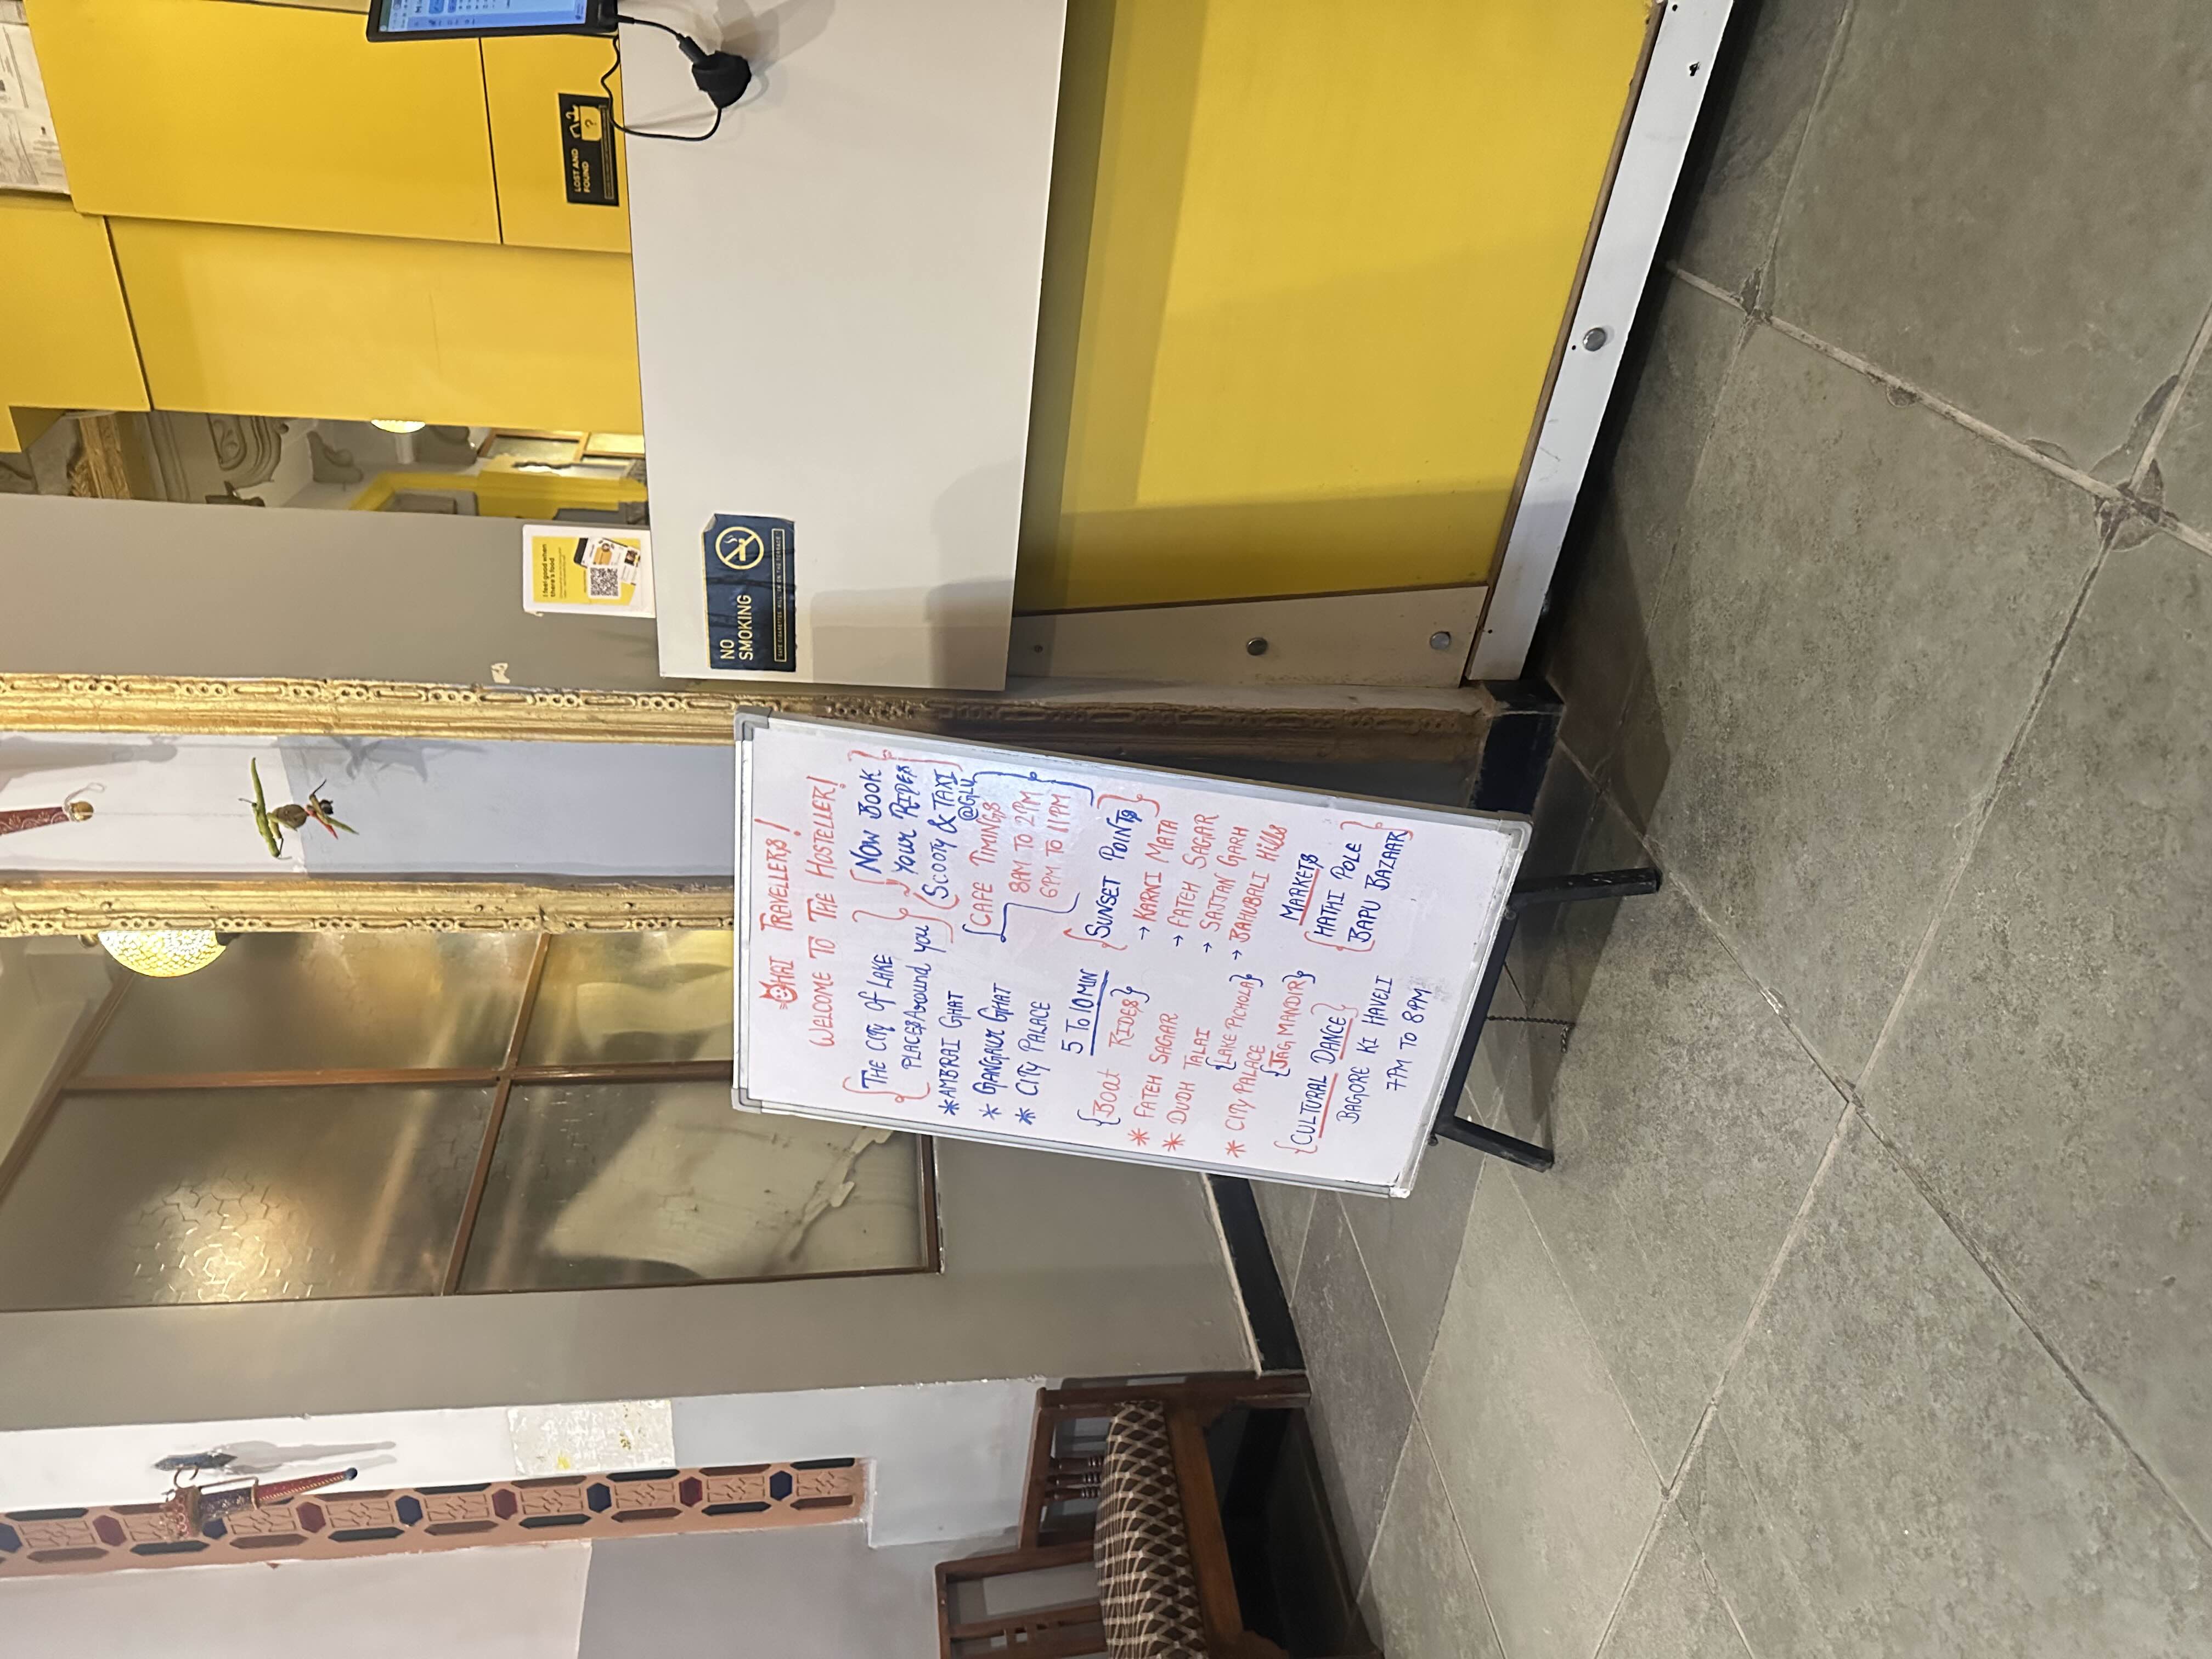 OHAI TRAVELLERS!
WELCOME TO THE HOSTELLER!
{THE CITY OF LAKE
PLACES Around you}
*AMBRAI GHAT
* GANGAUR GHAT
* CITY PALACE
5 To 10 MIN
{Boat RIDES}
* FATEH SAGAR
* DUDH TALAI
{LAKE PICHOLA}
* CITY PALACE
{JAG MANDIR}
{CULTURAL DANCE}
BAGORE KI HAVELI
7PM TO 8PM
{NOW BOOK}
YOUR
(SCOOTY & TAXI
CAFE TIMINGS
8AM TO 2PM
6PM TO 11PM
{SUNSET POINTS}
→ KARNI MATA
→ FATEH SAGAR
→ SAJJAN GARH
→ BAHUBALI Hills
MARKETS
{HATHI POLE}
BAPU BAZAAR
NO
SMOKING
LOST AND
FOUND
?
I feel good when
there's food